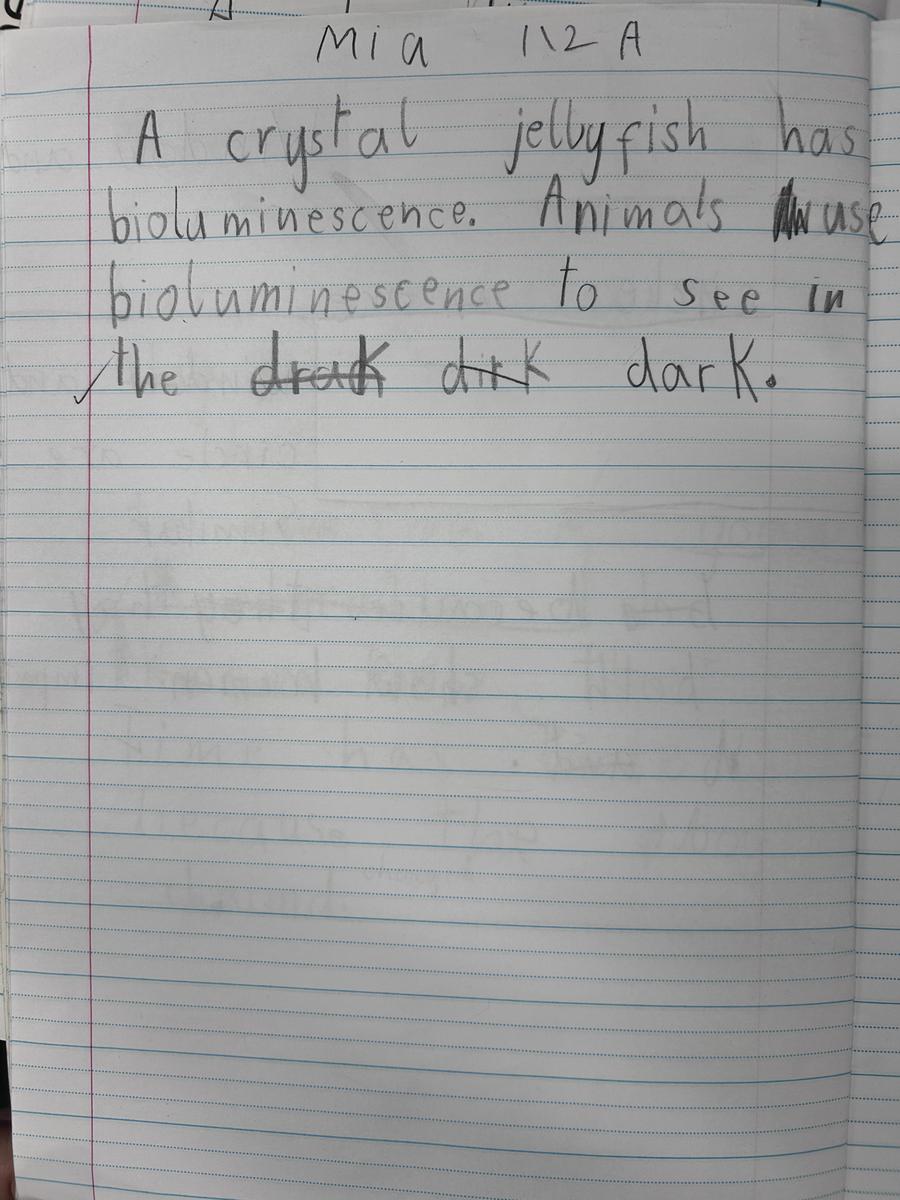 Mia 1\2 A
A crystal jellyfish has
bioluminescence. Animals use
bioluminescence to see in
the drack dirk dark.